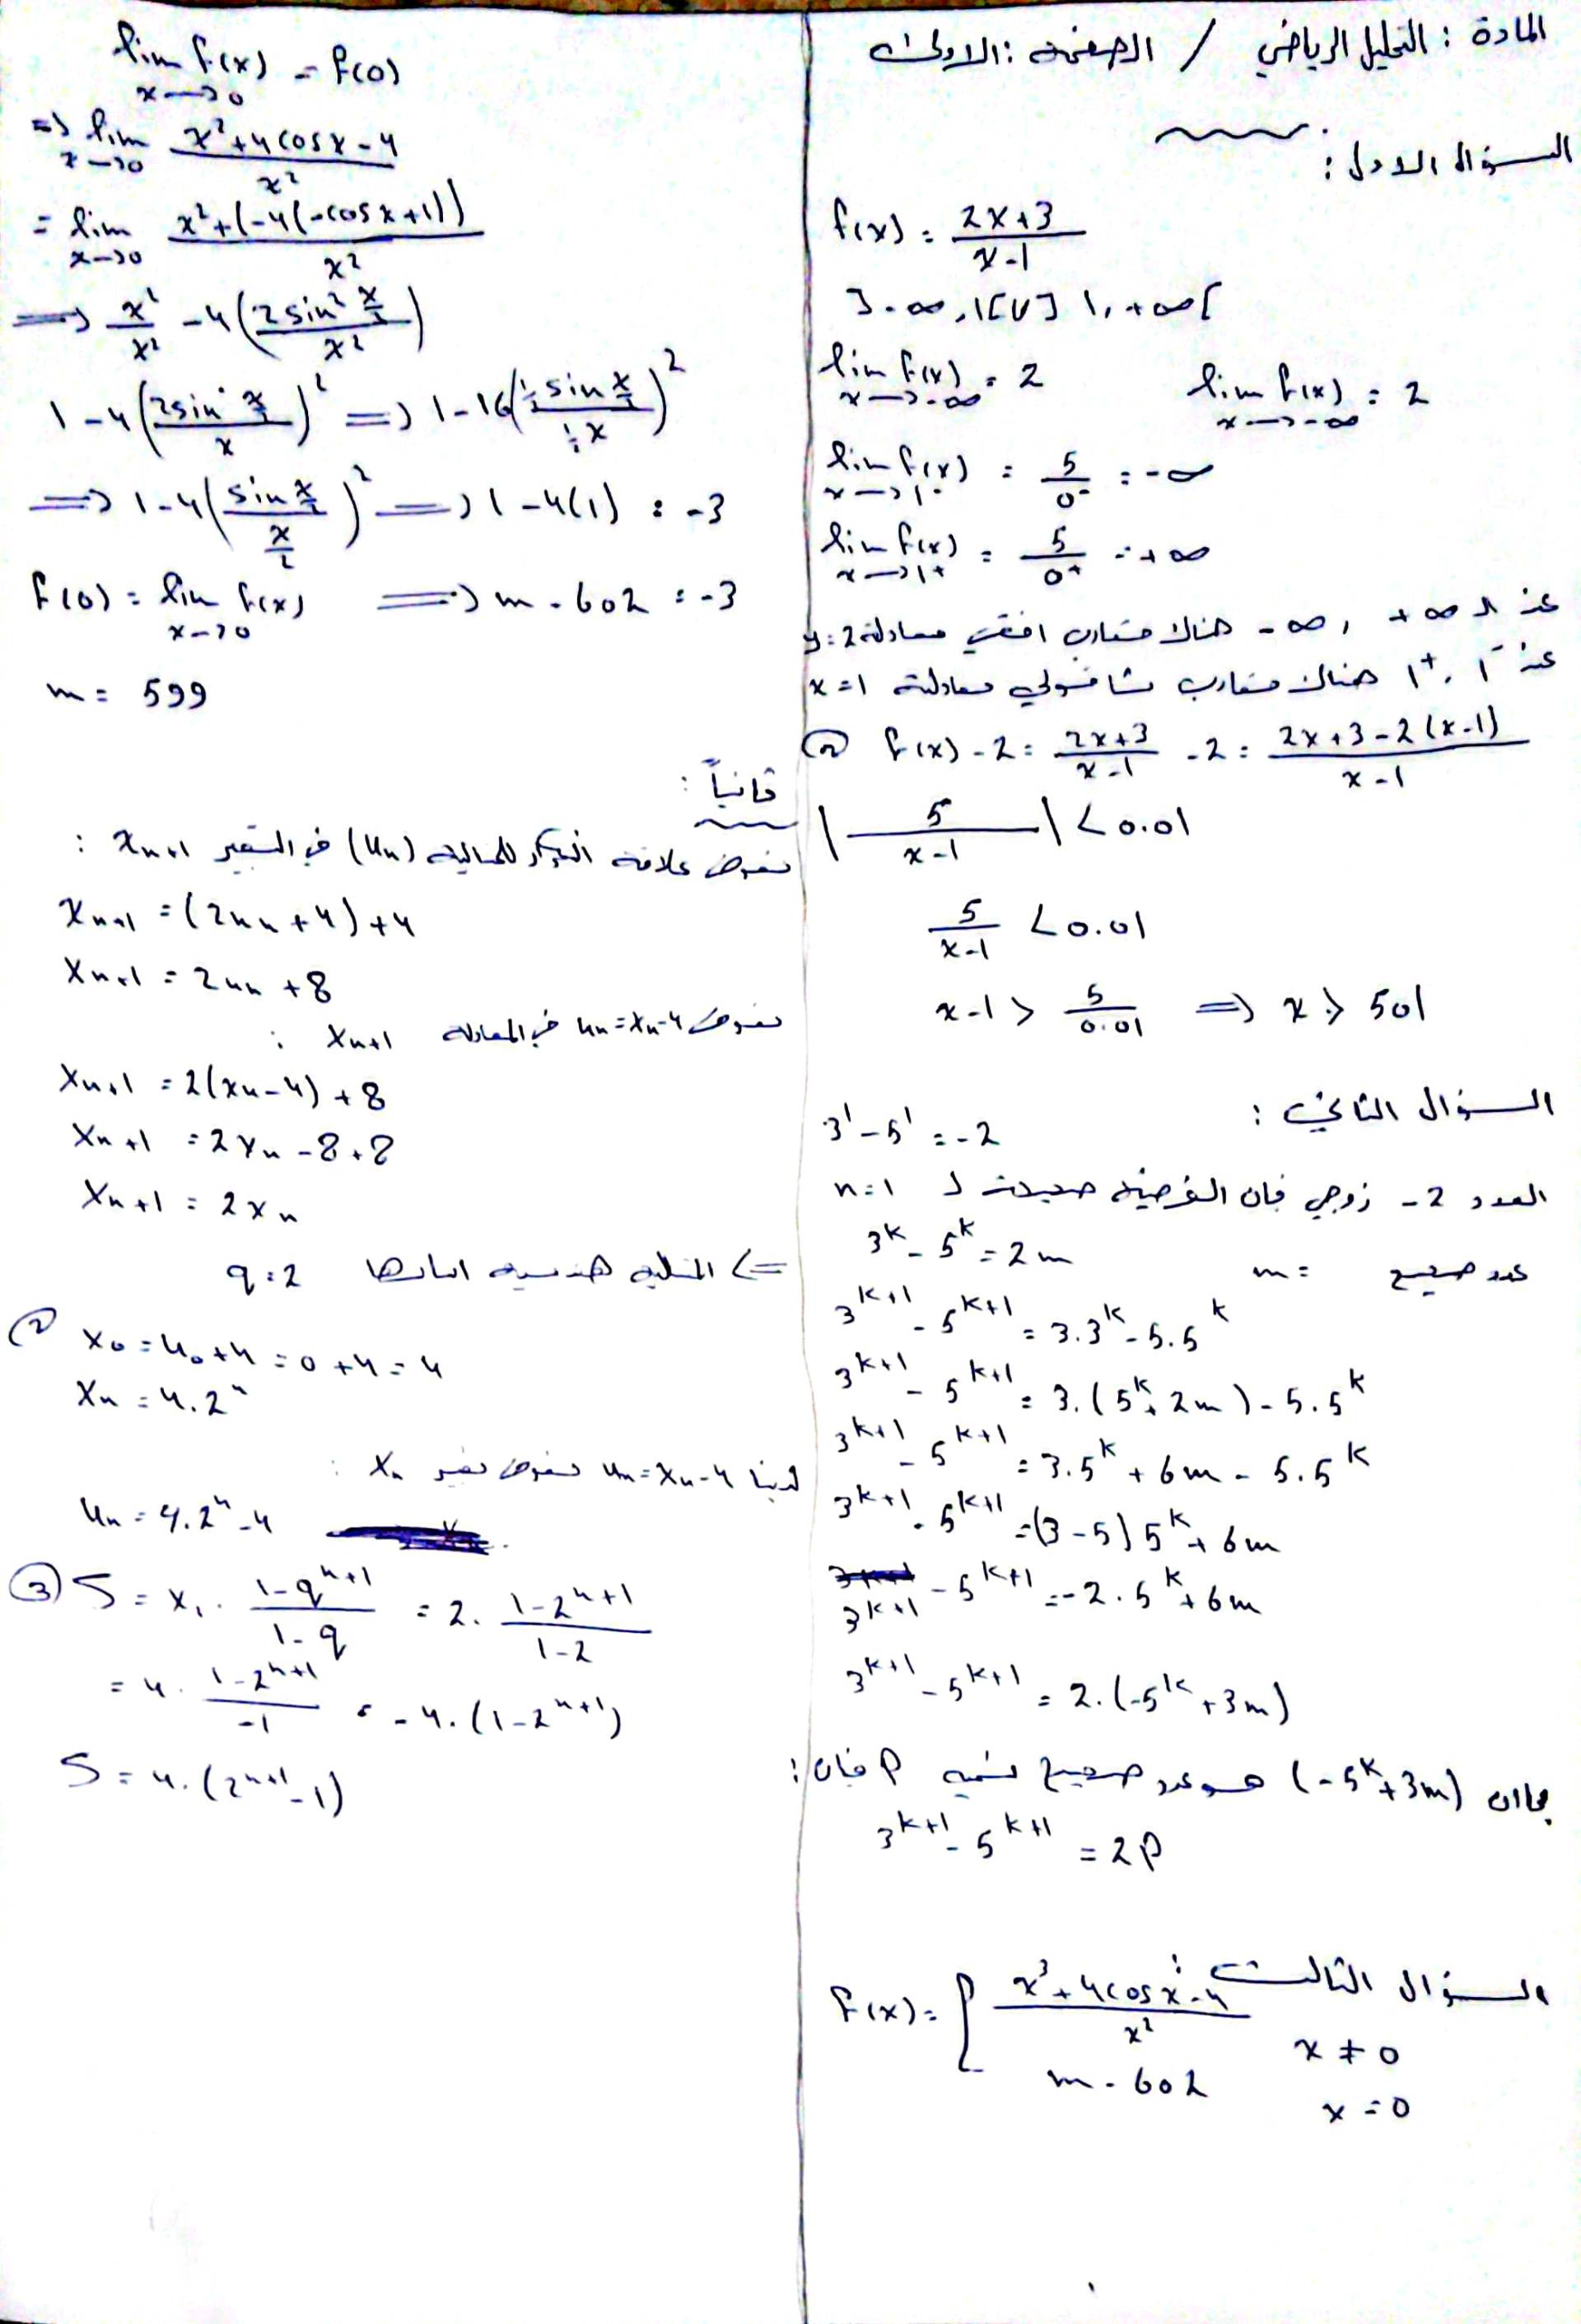 المادة : التحليل الرياضي / الصفحة : الاولى
السؤال الاول :
f(x) = (2x+3)/(x-1)
]-∞, 1[ U ] 1, +∞[
lim f(x) = 2 x→-∞ lim f(x) = 2 x→-∞
lim f(x) = 5/0⁻ = -∞ x→1⁻
lim f(x) = 5/0⁺ = +∞ x→1⁺
عند الـ +∞ , -∞ هناك مقارب افقي معادلة y=2
عند 1⁻ , 1⁺ هناك مقارب شاقولي معادلته x=1
② f(x) - 2 = (2x+3)/(x-1) - 2 = (2x+3-2(x-1))/(x-1)
| 5/(x-1) | < 0.01
5/(x-1) < 0.01
x-1 > 5/0.01 ⇒ x > 501
السؤال الثاني :
3¹ - 5¹ = -2
العدد 2- زوجي فان الفرضية صحيحة لـ n=1
3^k - 5^k = 2m m = عدد صحيح
3^(k+1) - 5^(k+1) = 3.3^k - 5.5^k
3^(k+1) - 5^(k+1) = 3.(5^k + 2m) - 5.5^k
3^(k+1) - 5^(k+1) = 3.5^k + 6m - 5.5^k
3^(k+1) - 5^(k+1) = (3-5) 5^k + 6m
3^(k+1) - 5^(k+1) = -2.5^k + 6m
3^(k+1) - 5^(k+1) = 2.(-5^k + 3m)
بما ان (-5^k + 3m) هو عدد صحيح نسميه P فان :
3^(k+1) - 5^(k+1) = 2P
السؤال الثالث :
f(x) = { (x³+4cosx-4)/x² x ≠ 0
m - 602 x = 0
lim f(x) = f(0) x→0
⇒ lim (x²+4cosx-4)/x² x→0
= lim (x²+(-4(-cosx+1)))/x² x→0
⇒ x²/x² - 4(2sin² x/2 / x²)
1-4(2sin x/2 / x)² ⇒ 1-16(½ sin x/2 / ½ x)²
⇒ 1-4(sin x/2 / x/2)² ⇒ 1-4(1) = -3
f(0) = lim f(x) x→0 ⇒ m - 602 = -3
m = 599
ثانياً :
نعوض علاقة التكرار للمتتالية (Un) في التعبير xn+1 :
xn+1 = (2un + 4) + 4
xn+1 = 2un + 8
نعوض un = xn-4 في المعادلة xn+1 :
xn+1 = 2(xn-4) + 8
xn+1 = 2xn - 8 + 8
xn+1 = 2xn
⇐ المتتالية هندسية اساسها q=2
② x0 = u0+4 = 0+4 = 4
xn = 4.2^n
لدينا un = xn-4 نعوض تعبير xn :
un = 4.2^n - 4
③ S = x1 . (1-q^(n+1))/(1-q) = 2. (1-2^(n+1))/(1-2)
= 4. (1-2^(n+1))/(-1) = -4.(1-2^(n+1))
S = 4.(2^(n+1) - 1)